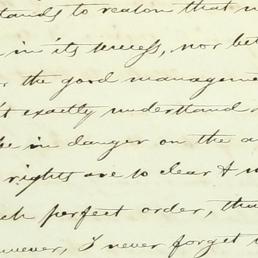 tands to reason that
in its success, nor bet
the good manageme
t exactly understand
in danger on the a
rights are to clear &
ch perfect order, tha
owever, I never forget